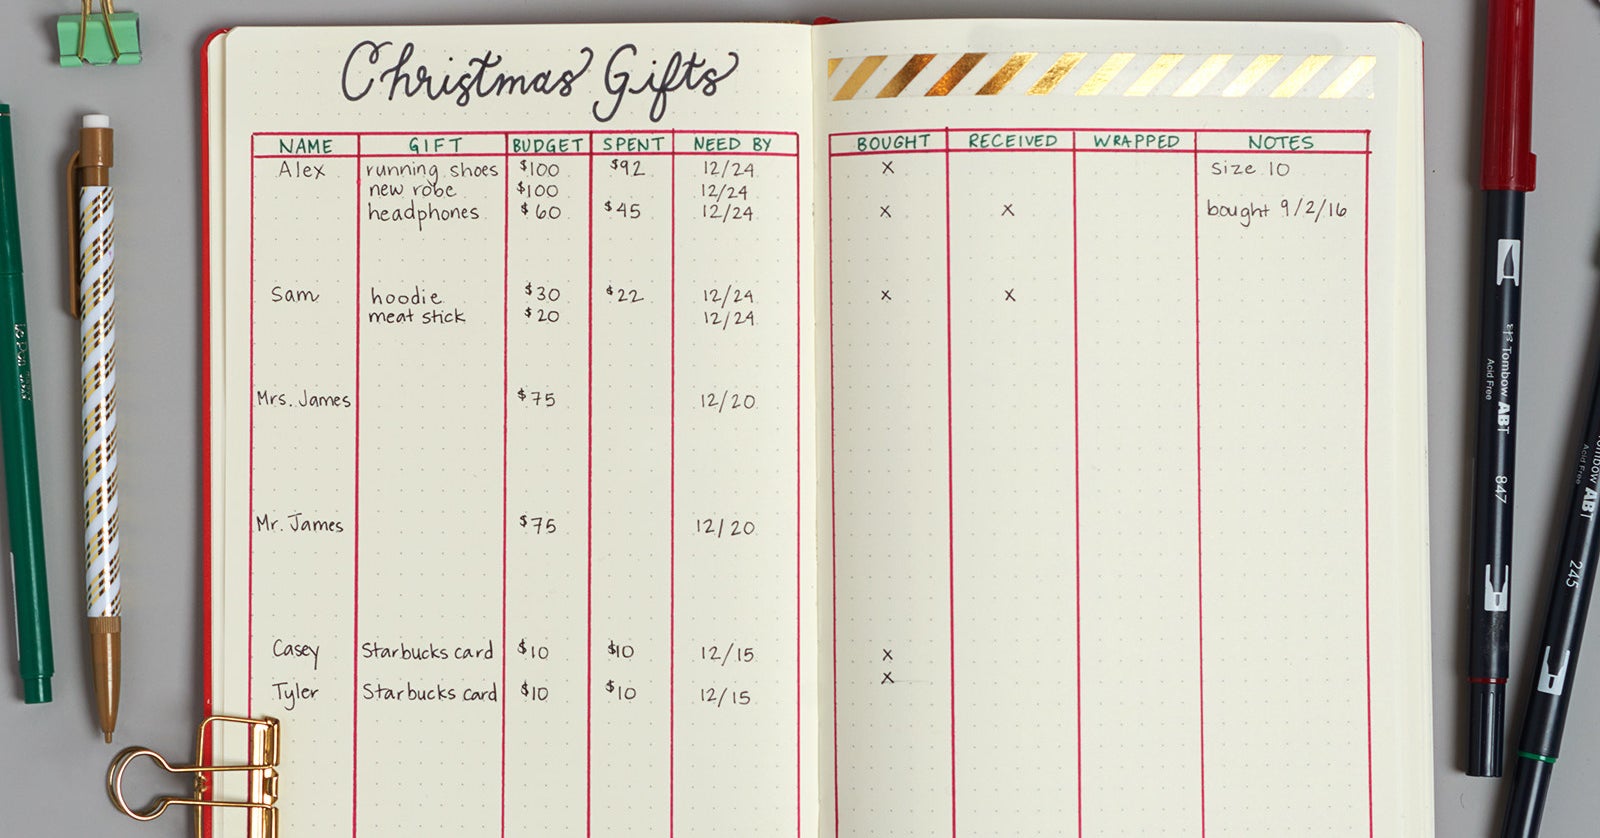 Christmas Gifts
NAME GIFT BUDGET SPENT NEED BY BOUGHT RECEIVED WRAPPED NOTES
Alex running shoes $100 $92 12/24 x size 10
new robe $100 12/24
headphones $60 $45 12/24 x x bought 9/2/16
Sam hoodie $30 $22 12/24 x x
meat stick $20 12/24
Mrs. James $75 12/20
Mr. James $75 12/20
Casey Starbucks card $10 $10 12/15 x
Tyler Starbucks card $10 $10 12/15 x
Tombow ABT
Acid Free
847
Tombow ABT
Acid Free
245